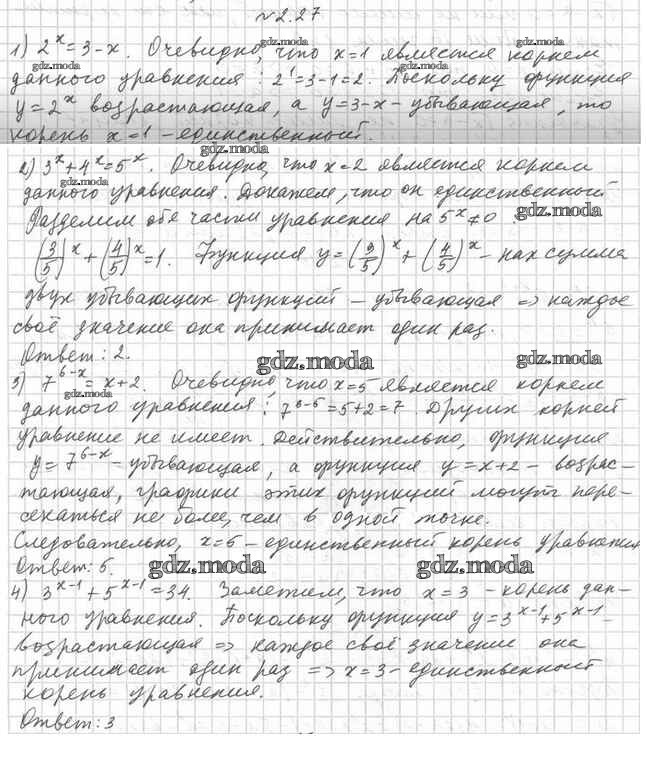 №2.27
1) 2^x = 3 - x. Очевидно, что x = 1 является корнем
gdz.moda gdz.moda
данного уравнения: 2^1 = 3 - 1 = 2. Поскольку функция
y = 2^x возрастающая, а y = 3 - x - убывающая, то
корень x = 1 - единственный.
gdz.moda
2) 3^x + 4^x = 5^x. Очевидно, что x = 2 является корнем
gdz.moda
данного уравнения. Докажем, что он единственный
Разделим обе части уравнения на 5^x ≠ 0.
gdz.moda
(3/5)^x + (4/5)^x = 1. Функция y = (3/5)^x + (4/5)^x - как сумма
двух убывающих функций - убывающая => каждое
своё значение она принимает один раз.
Ответ: 2.
gdz.moda gdz.moda
3) 7^(6-x) = x + 2. Очевидно, что x = 5 является корнем
gdz.moda
данного уравнения: 7^(6-5) = 5 + 2 = 7. Других корней
уравнение не имеет. Действительно, функция
y = 7^(6-x) - убывающая, а функция y = x + 2 - возрас-
тающая, графики этих функций могут пере-
секаться не более, чем в одной точке.
Следовательно, x = 5 - единственный корень уравнения
Ответ: 5.
gdz.moda gdz.moda
4) 3^(x-1) + 5^(x-1) = 34. Заметим, что x = 3 - корень дан-
ного уравнения. Поскольку функция y = 3^(x-1) + 5^(x-1) -
возрастающая => каждое своё значение она
принимает один раз => x = 3 - единственный
корень уравнения.
Ответ: 3